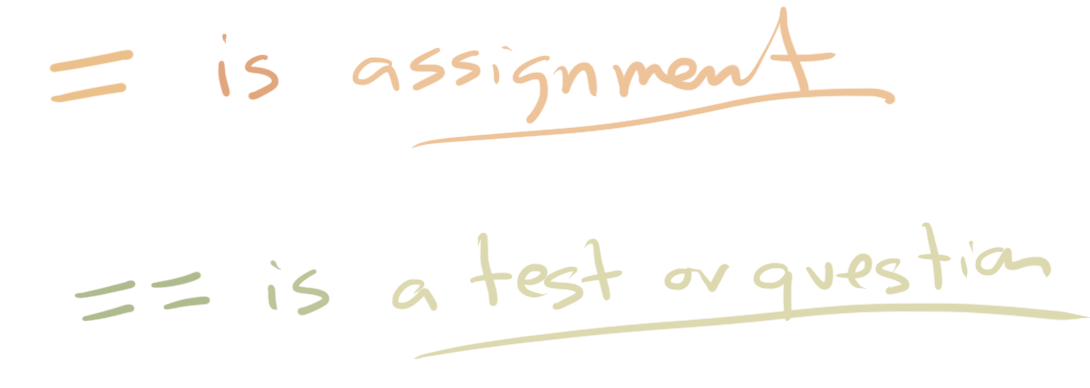 = is assignment
== is a test or question